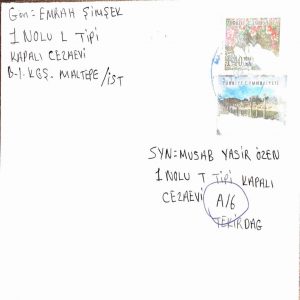 Gön: EMRAH ŞİMŞEK
1 NOLU L TİPİ
KAPALI CEZAEVİ
B-1. KĞŞ. MALTEPE/İST
TÜRKİYE CUMHURİYETİ
SYN: MUSAB YASİR ÖZEN
1 NOLU T TİPİ KAPALI
CEZAEVİ A/6
TEKİRDAG